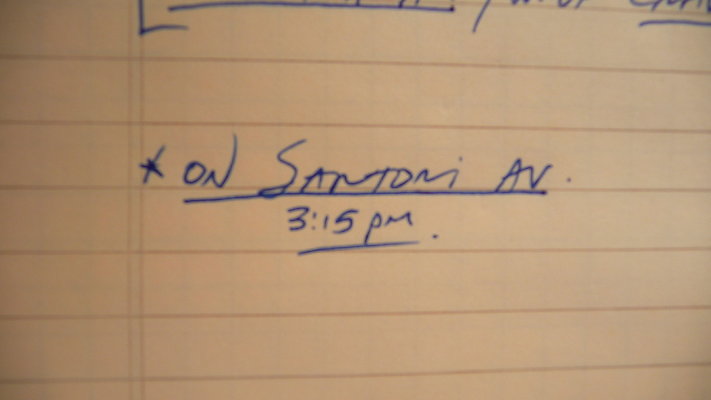 * ON SANTONI AV.
3:15 pm.